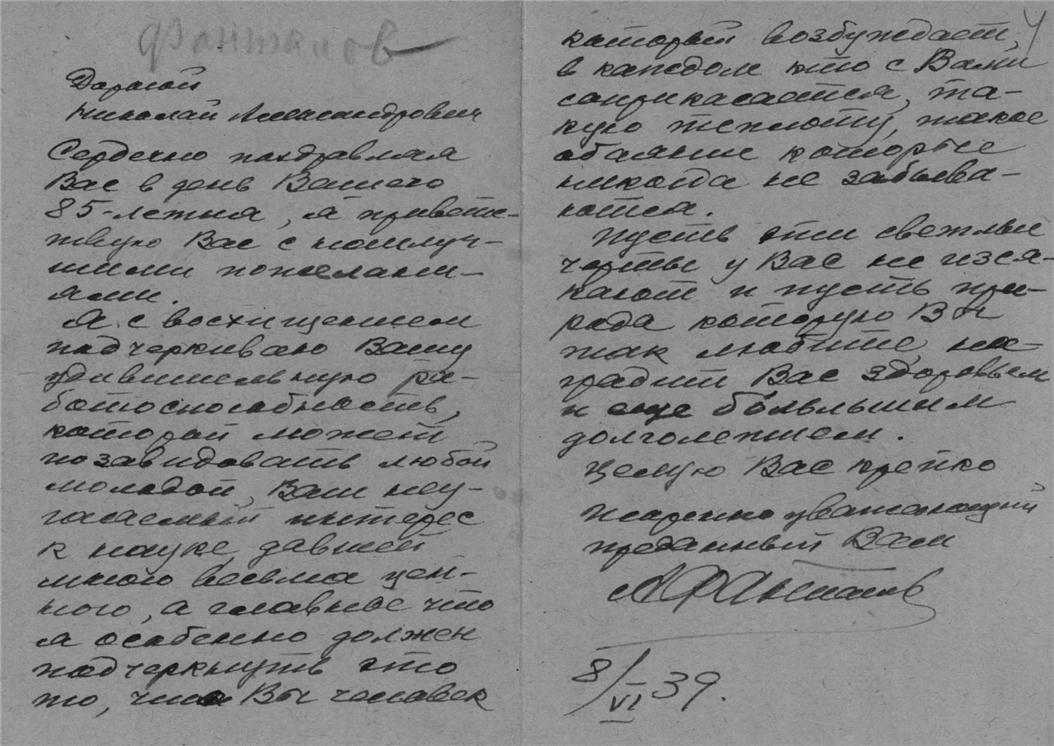 Фанталов
Дорогой
Николай Александрович
Сердечно поздравляя
Вас в день Вашего
85-летия, я приветс-
твую Вас с наилуч-
шими пожелани-
ями.
Я с восхищением
подчеркиваю Вашу
удивительную ра-
ботоспособность,
которой может
позавидовать любой
молодой, Ваш неу-
гасаемый интерес
к науке, давшей
много весьма цен-
ного, а главное что
я особенно должен
подчеркнуть это
то, что Вы человек
4
который возбуждает,
в каждом кто с Вами
соприкасается, та-
кую теплоту, такое
обаяние которые
никогда не забыва-
ются.
Пусть эти светлые
черты у Вас не изся-
кают и пусть при-
рода которую Вы
так любите, на-
градит Вас здоровьем
и еще большим
долголетием.
Целую Вас крепко
искренно уважающий
преданный Вам
А Фанталов
8/VI 39.